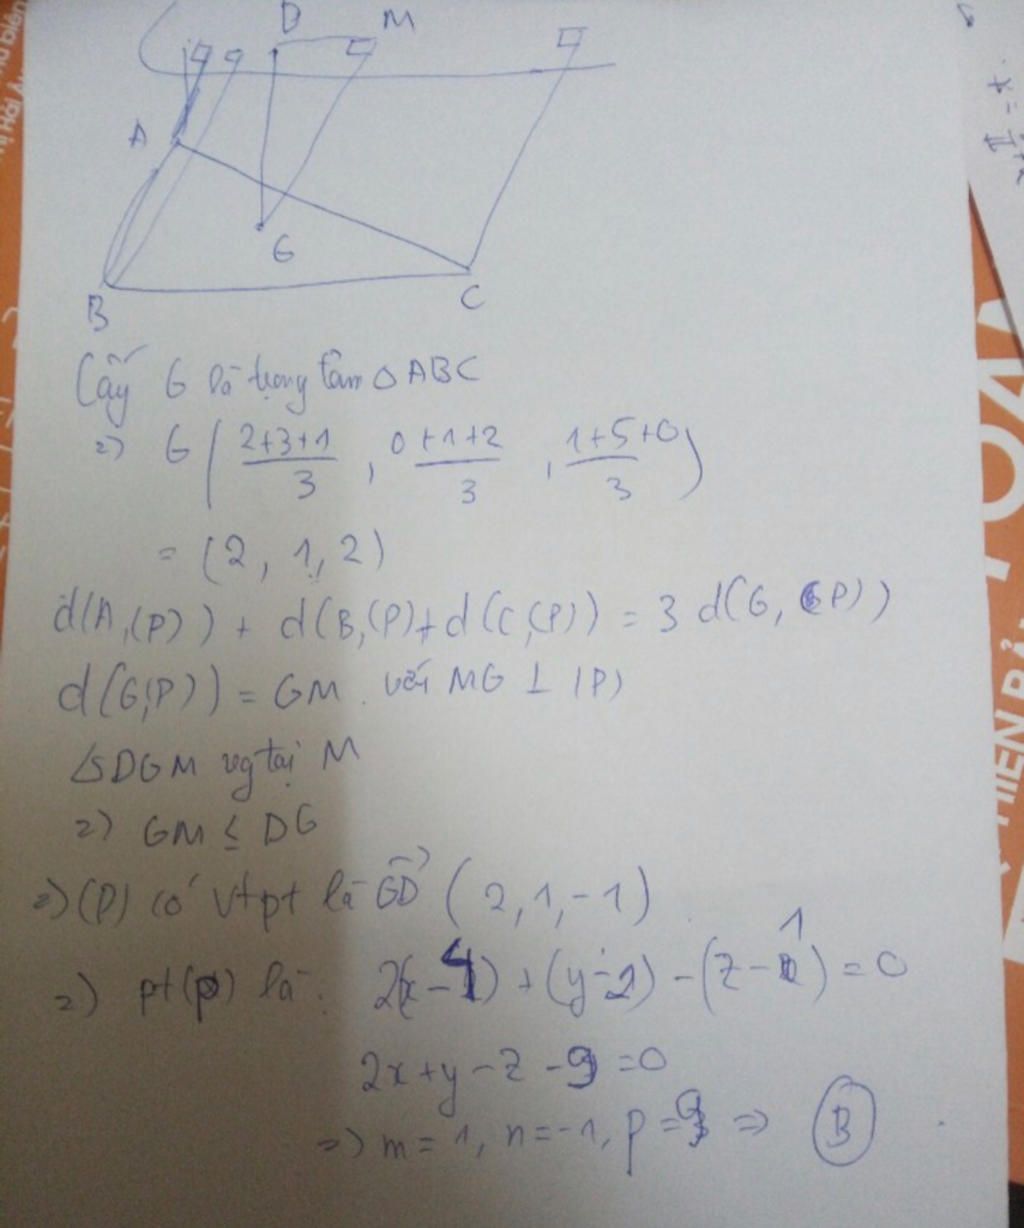 D M
A
G
B
C
Lấy G là trọng tâm △ABC
=> G ( 2+3+1 / 3 , 0+1+2 / 3 , 1+5+0 / 3 )
= (2, 1, 2)
d(A,(P)) + d(B,(P) + d(C,(P)) = 3 d(G, (P))
d(G,P)) = GM. với MG ⊥ (P)
△DGM vg tại M
=> GM ≤ DG
=> (P) có vtpt là GD (2, 1, -1)
=> pt(P) là: 2(x-4) + (y-2) - (z-1) = 0
2x+y-z-9=0
=> m=1, n=-1, p=9 => B
TOÁN